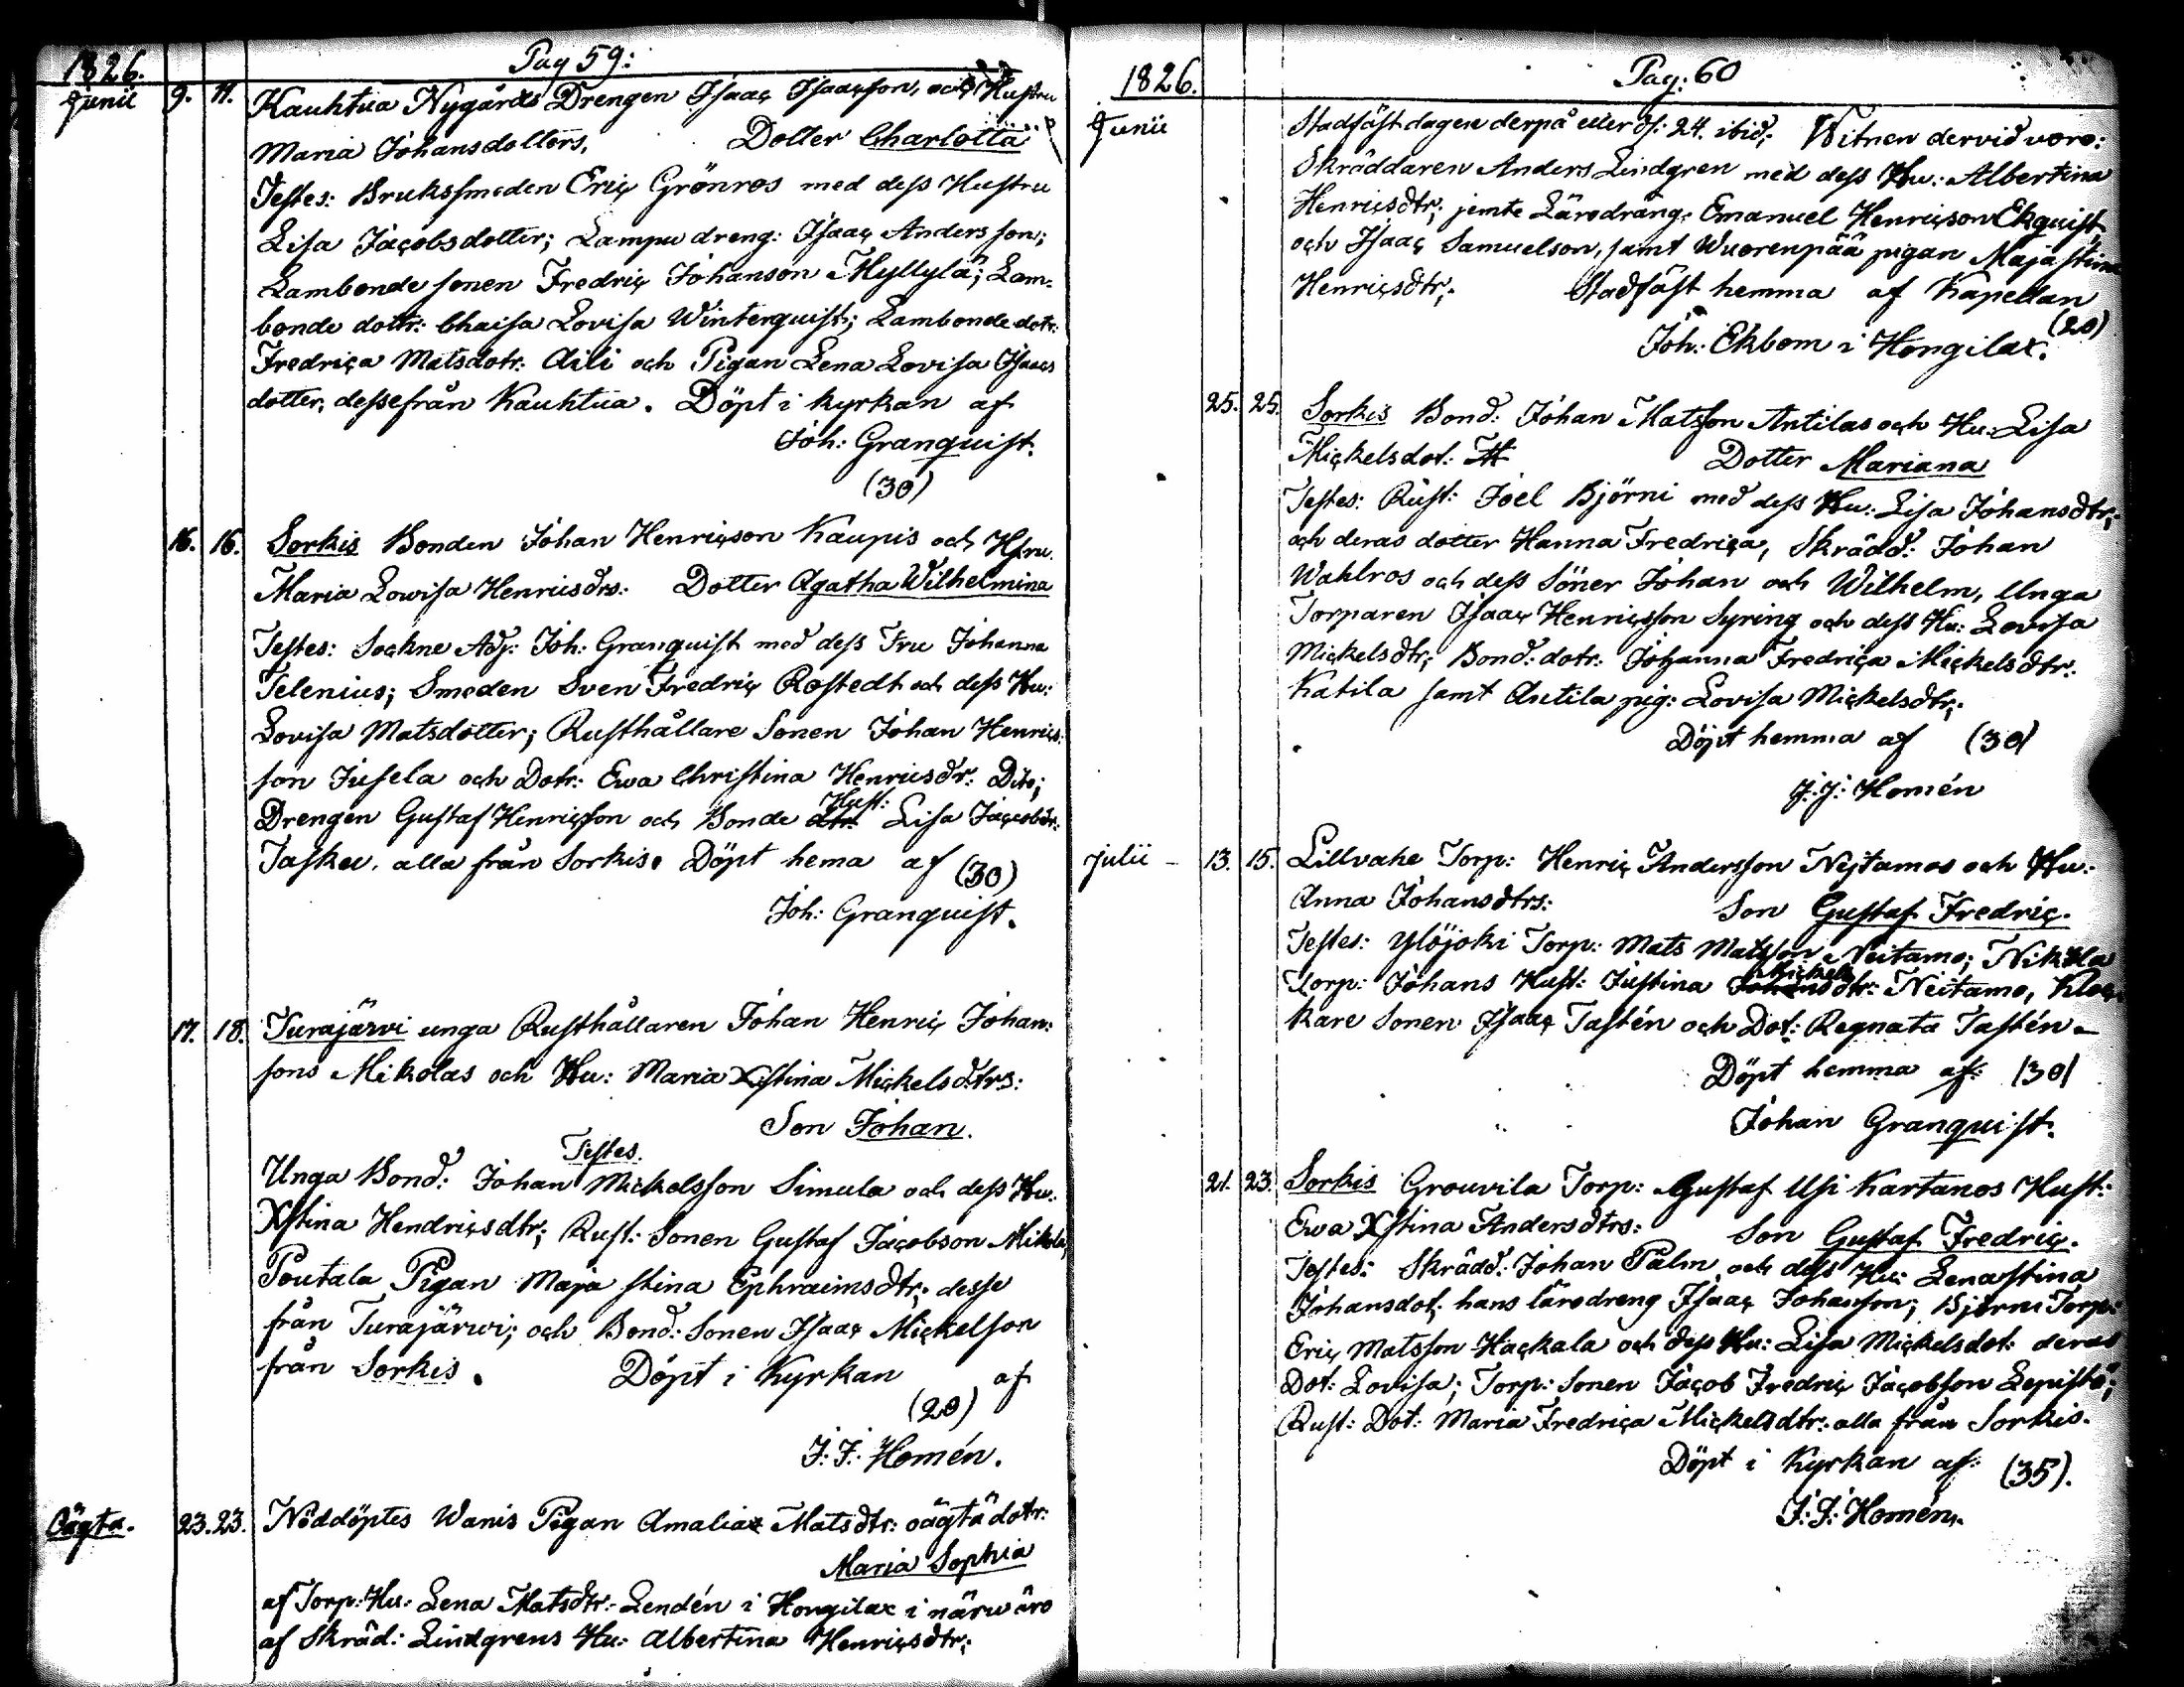 1826. Pag 59:
Junii 9. 11. Kauhtua Nygårds Drengen Isaac Isaacson, och Hustru
Maria Johansdotters, Dotter Charlotta
Testes: Bruksmeden Eric Grönros med dess Hustru
Lisa Jacobsdotter; Lampu dreng: Isaac Andersson;
Lambonde sonen Fredric Johanson Myllylä; Lam-
bonde dottr: Chaisa Lovisa Winterquist; Lambonde dotr:
Fredrica Matsdotr: Aili och Pigan Lena Lovisa Isaacs
dotter, desse från Kauhtua. Döpt i kyrkan af
Joh: Granquist.
(30)
16. 16. Sorkis Bonden Johan Henricson Kaupis och Hstru.
Maria Lowisa Henricsdrs: Dotter Agatha Wilhelmina
Testes: Sockne Adj: Joh: Granquist med dess Fru Johanna
Telenius; Smeden Sven Fredric Rostedt och dess Hu:
Lovisa Matsdotter; Rusthållare Sonen Johan Henrics:
son Jusela och Dotr: Ewa Christina Henricsdr: Dito;
Hust:
Drengen Gustaf Henricsson och Bonde dtr. Lisa Jacobdr:
Taskeu, alla från Sorkis. Döpt hema af (30)
Joh: Granquist.
17. 18. Turajärvi unga Rusthållaren Johan Henric Johan:
sons Mikolas och Hu: Maria Xstina Mickelsdtrs:
Son Johan.
Testes.
Unga Bond: Johan Mickelsson Simula och dess Hu:
Xstina Hendricsdtr; Rust: Sonen Gustaf Jacobson Mikola,
Poutala Pigan Maja Stina Ephraimsdtr; desse
från Turajärwi; och Bond: Sonen Isaac Mickelson
från Sorkis. Döpt i Kyrkan af
(20)
J: J: Homén.
Oägta. 23. 23. Nöddöptes Wanis Pigan Amalia Matsdtr: oägta dotr:
Maria Sophia
af Torp: Hu: Lena Matsdtr: Lendén i Hongilax i närwäro
af Skräd: Lindgrens Hu: Albertina Henricsdtr;
1826. Pag: 60
Junii Stadfäst dagen derpå eller d: 24. ibid; Witnen dervid voro:
Skräddaren Anders Lindgren med dess Hu: Albertina
Henricsdtr; jemte Lärodräng: Emanuel Henricson Ekquist
och Isaac Samuelson, samt Wuorenpää pigan Maja Stina
Henricsdtr; Stadfäst hemma af Kapellan
(20)
Joh: Ekbom i Hongilax.
25. 25. Sorkis Bond: Johan Matsson Antilas och Hu: Lisa
Mickelsdot: Dotter Mariana
Testes: Rust: Joel Björni med dess Hu: Lisa Johansdtr;
och deras dotter Hanna Fredrica, Skrädd: Johan
Wahlros och dess Söner Johan och Wilhelm, Unga
Torparen Isaac Henricsson Syring och dess Hu: Lovisa
Mickelsdtr; Bond: dotr: Johanna Fredrica Mickelsdtr:
Katila samt Antila pig: Lovisa Mickelsdtr;
Döpt hemma af (30)
J: J: Homén
Julii - 13. 15. Lillvahe Torp: Henric Andersson Nejtamos och Hu:
Anna Johansdtrs: Son Gustaf Fredric.
Testes: Ylöjoki Torp: Mats Matsson Neitamo; Nikkla
Mickels
Torp: Johans Hust: Justina Johansdtr: Neitamo, Kloc
kare Sonen Isaac Tastén och Dot: Regnata Tastén -
Döpt hemma af: (30)
Johan Granquist.
21. 23. Sorkis Grouvila Torp: Gustaf Usi Kartanos Hust:
Ewa Xstina Andersdtrs: Son Gustaf Fredric.
Testes: Skrädd: Johan Palm och dess Hu: Lena Stina
Johansdot; hans lärodreng Isaac Johansson; Björni Torp:
Eric Matsson Hackala och dess Hu: Lisa Mickelsdot: deras
Dot: Lovisa; Torp: Sonen Jacob Fredric Jacobson Lepistö;
Rust: Dot: Maria Fredrica Mickelsdtr: alla från Sorkis.
Döpt i Kyrkan af: (35).
J: J: Homén.